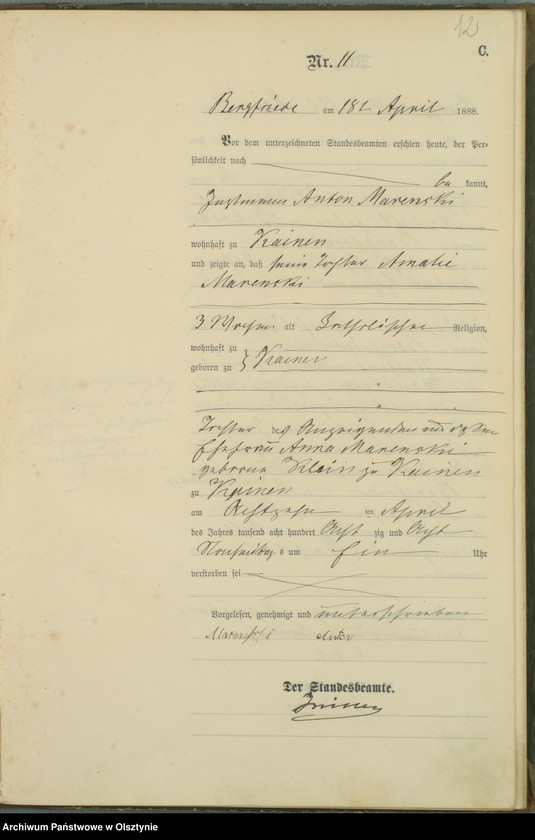 12
C.
Nr. 11
Bergfriede am 18t April 1888.
Vor dem unterzeichneten Standesbeamten erschien heute, der Per-
sönlichkeit nach
be kannt,
Instmann Anton Marenski
wohnhaft zu Kainen
und zeigte an, daß seine Tochter Amalie
Marenski
3 Wochen alt Katholischer Religion,
wohnhaft zu
geboren zu } Kainen
Tochter des Anzeigenden und dessen
Ehefrau Anna Marenski
geborene Klein zu Kainen
zu Kainen
am Achtzehn ten April
des Jahres tausend acht hundert Acht zig und Acht
Nachmittags um Ein Uhr
verstorben sei
Vorgelesen, genehmigt und unterschrieben
Marenski Anton
Der Standesbeamte.
Archiwum Państwowe w Olsztynie